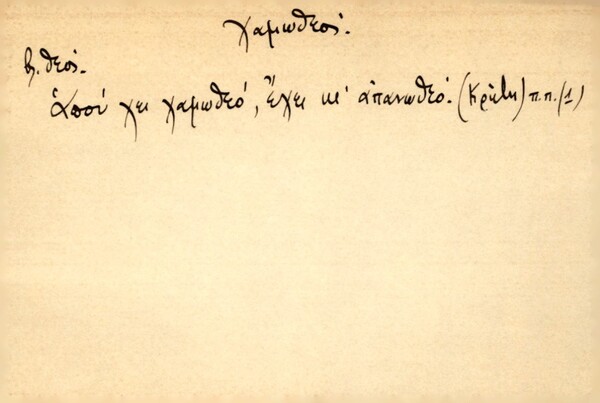 χαμωθεός.
βλ. θεός.
Ἁποὺ χει χαμωθεό, ἔχει κι' ἀπανωθεό. (Κρήτη) π.π. (1)